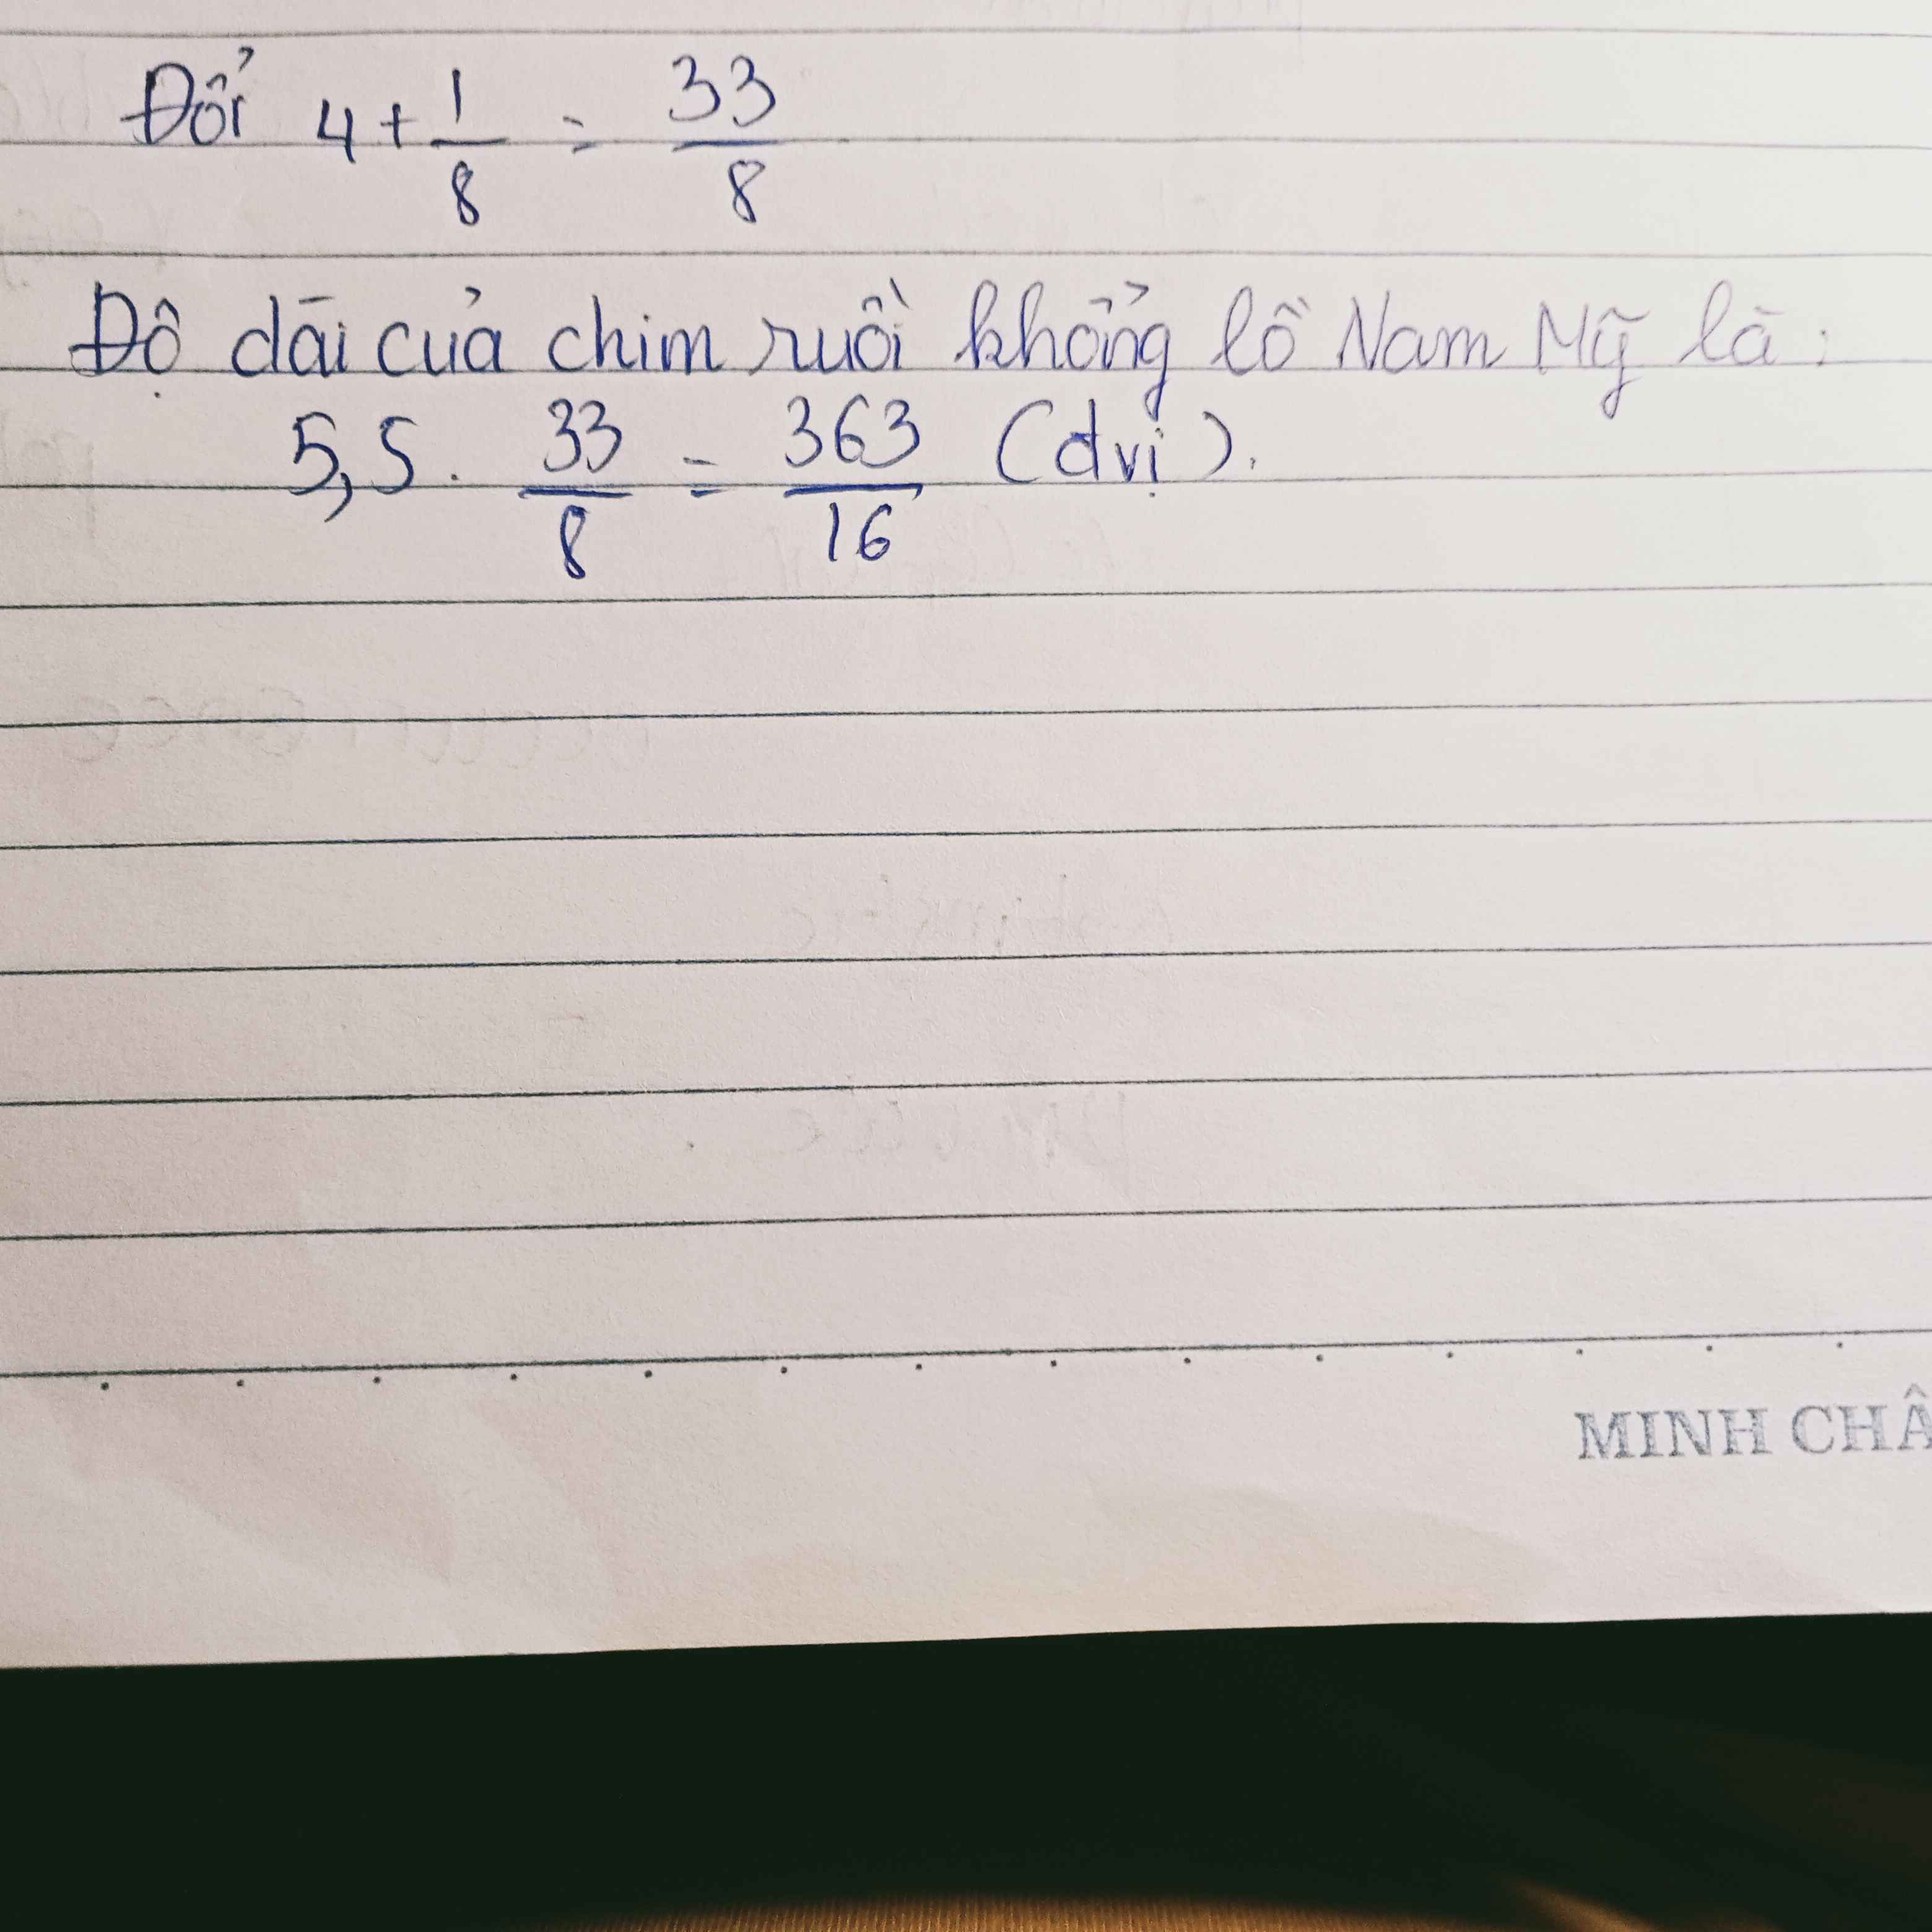 Đổi 4 + 1/8 = 33/8
Độ dài của chim ruồi khổng lồ Nam Mỹ là:
5,5 . 33/8 = 363/16 (đvị).
MINH CHÂ